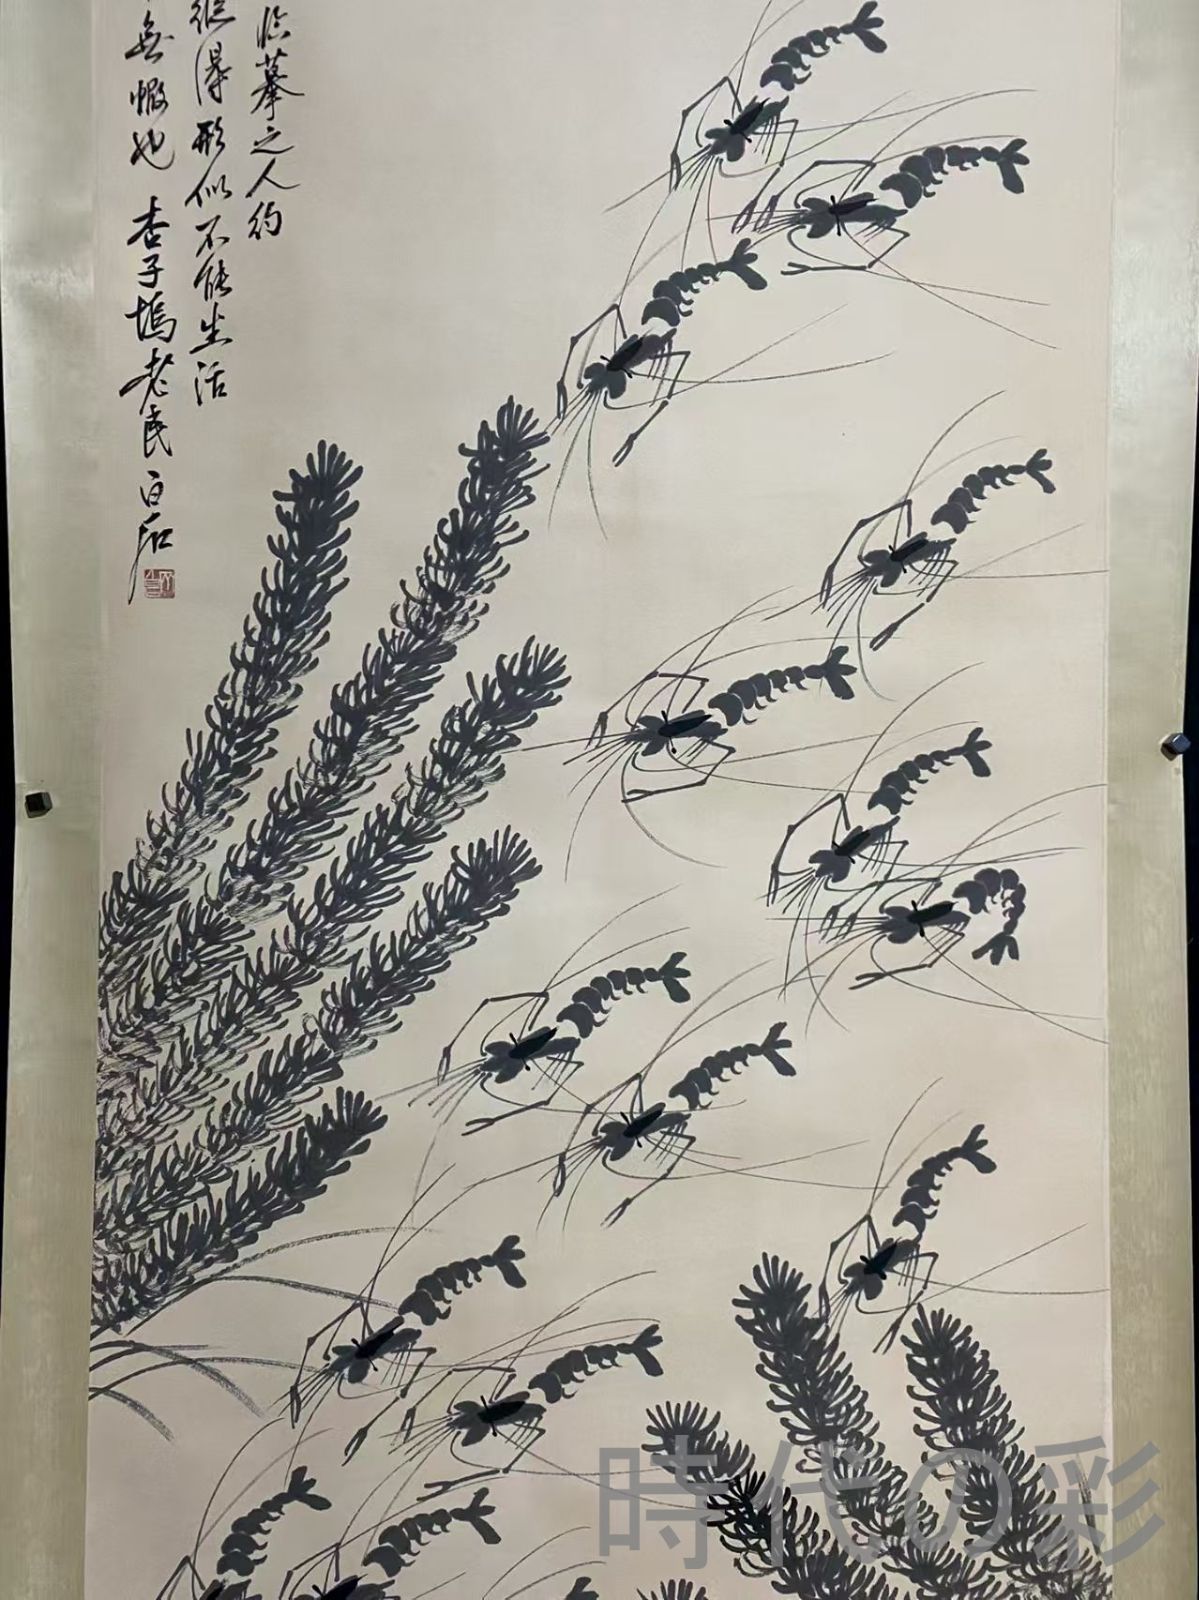 临摹之人约
纵得形似不能生活
無惭也 杏子塢老民白石
時代の彩